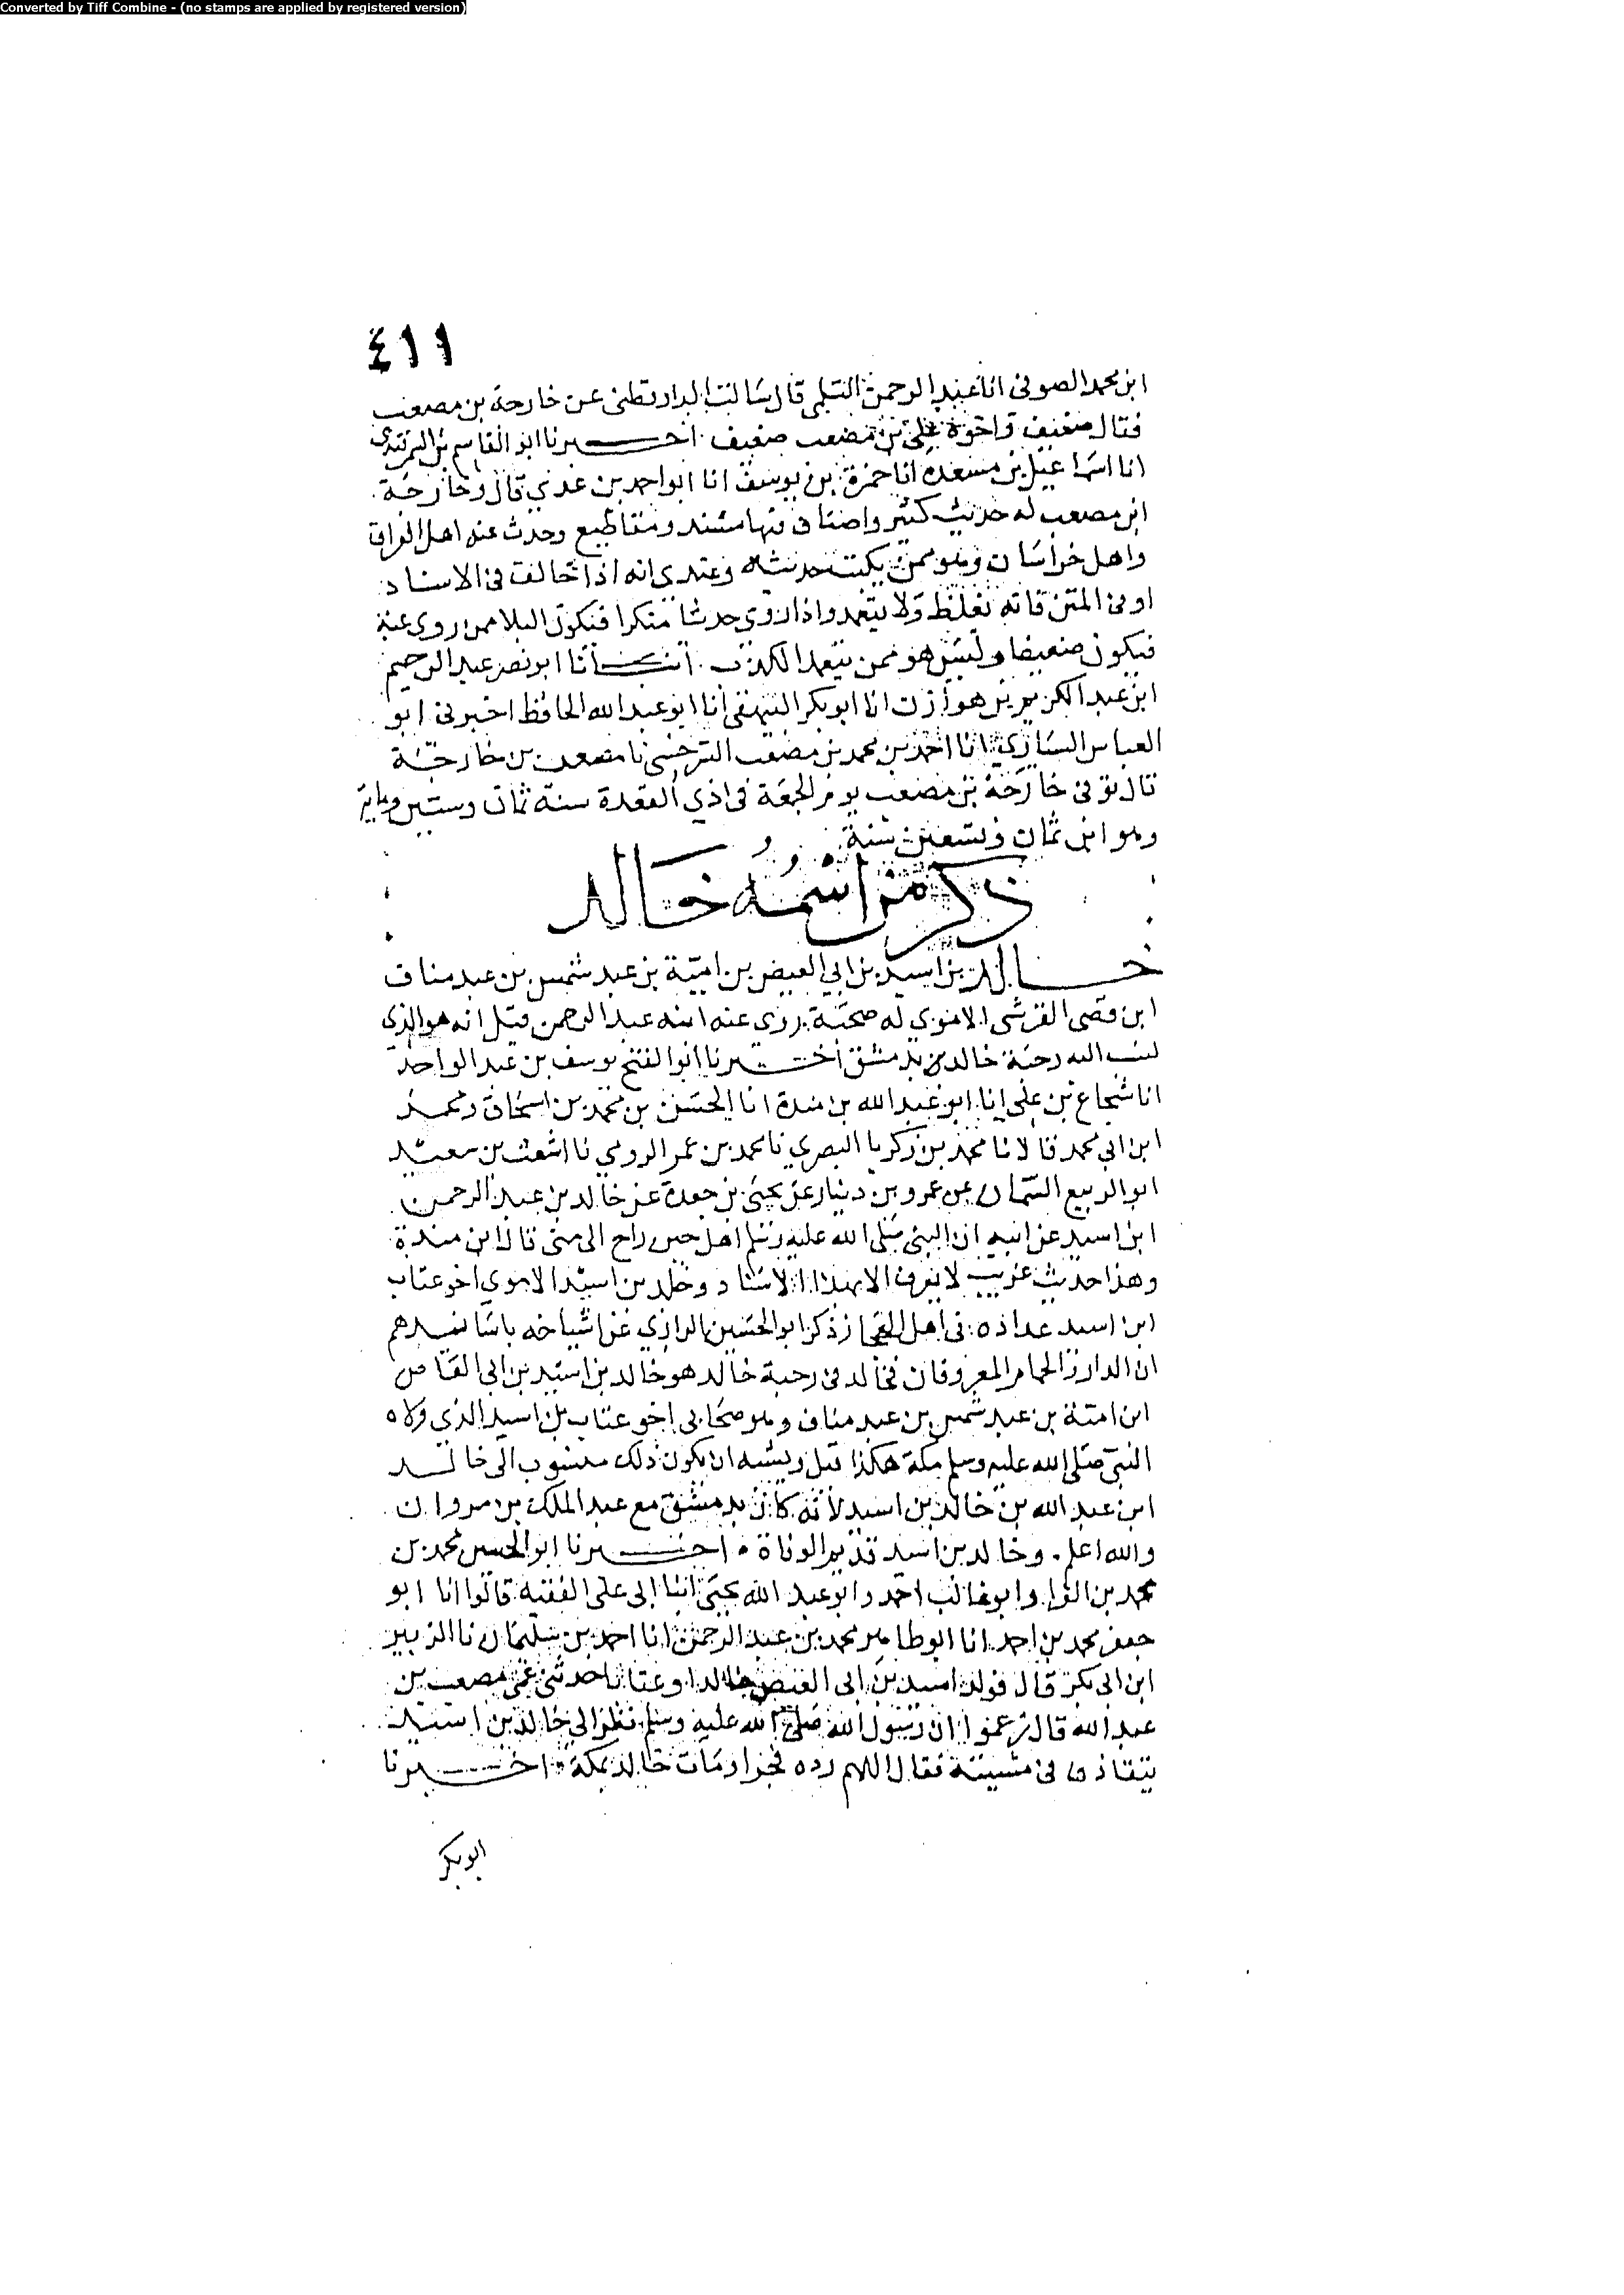 Converted by Tiff Combine - (no stamps are applied by registered version)
٤١١
ابن محمد الصوفي انا عبد الرحمن السلمي قال سالت الدارقطني عن خارجة بن مصعب
فقال ضعيف واخوه علي بن مصعب ضعيف . اخبرنا ابو القاسم بن السمرقندي
انا اسماعيل بن مسعدة انا حمزة بن يوسف انا ابو احمد بن عدي قال وخارجة
ابن مصعب له حديث كثير واصناف فيها مسند ومقاطيع وحدث عنه اهل العراق
واهل خراسان وهو ممن يكتب حديثه وعندي انه اذا خالف في الاسناد
او في المتن فانه يغلط ولا يتعمد واذا روى حديثا منكرا فيكون البلا ممن روى عنه
فيكون ضعيفا وليس هو ممن يتعمد الكذب . انبانا ابو نصر عبد الرحيم
ابن عبد الكريم بن هوازن انا ابو بكر البيهقي انا ابو عبد الله الحافظ اخبرني ابو
العباس السياري انا احمد بن محمد بن مصعب نا مصعب بن خارجة
قال توفي خارجة بن مصعب يوم الجمعة في ذي القعدة سنة ثمان وستين وماية
وهو ابن ثمان وتسعين سنة
ذكر من اسمه خالد
خالد بن اسيد بن ابي العيص بن امية بن عبد شمس بن عبد مناف
ابن قصي القرشي الاموي له صحبة روى عنه ابنه عبد الرحمن وقيل انه هو الذي
تنسب اليه رحبة خالد بدمشق اخبرنا ابو الفتح يوسف بن عبد الواحد
انا شجاع بن علي انا ابو عبد الله بن مندة انا الحسن بن محمد بن اسحاق ومحمد
ابن ابي محمد قالا نا محمد بن زكريا البصري نا محمد بن عمر الرومي نا اشعث بن سعيد
ابو الربيع السمان عن عمرو بن دينار عن يحيى بن جعدة عن خالد بن عبد الرحمن
ابن اسيد عن ابيه ان النبي صلى الله عليه وسلم اهل حين راح الى منى قال ابن مندة
وهذا حديث غريب لا يعرف الا بهذا الاسناد وخلد بن اسيد الاموي اخو عتاب
ابن اسيد عداده في اهل الحجاز ذكر ابو الحسين الرازي عن اشياخه باسانيدهم
ان الدار والحمام المعروفان بخالد في رحبة خالد هو خالد بن اسيد بن ابي العاص
ابن امية بن عبد شمس بن عبد مناف وهو صحابي اخو عتاب بن اسيد الذي ولاه
النبي صلى الله عليه وسلم مكة هكذا قيل ويشبه ان يكون ذلك منسوب الى خالد
ابن عبد الله بن خالد بن اسيد لانه كان بدمشق مع عبد الملك بن مروان
والله اعلم . وخالد بن اسيد قديم الوفاة . اخبرنا ابو الحسين محمد بن
محمد بن الفرا وابو غالب احمد وابو عبد الله يحيى ابنا ابي علي الفقيه قالوا انا ابو
جعفر محمد بن احمد انا ابو طاهر محمد بن عبد الرحمن انا احمد بن سليمان نا الزبير
ابن ابي بكر قال فولد اسيد بن ابي العيص خالدا وعتابا حدثني عمي مصعب بن
عبد الله قال زعموا ان رسول الله صلى الله عليه وسلم نظر الى خالد بن اسيد
يتقاذف في مشيته فقال اللهم زده فخرا ومات خالد بمكة . اخبرنا
ابو بكر